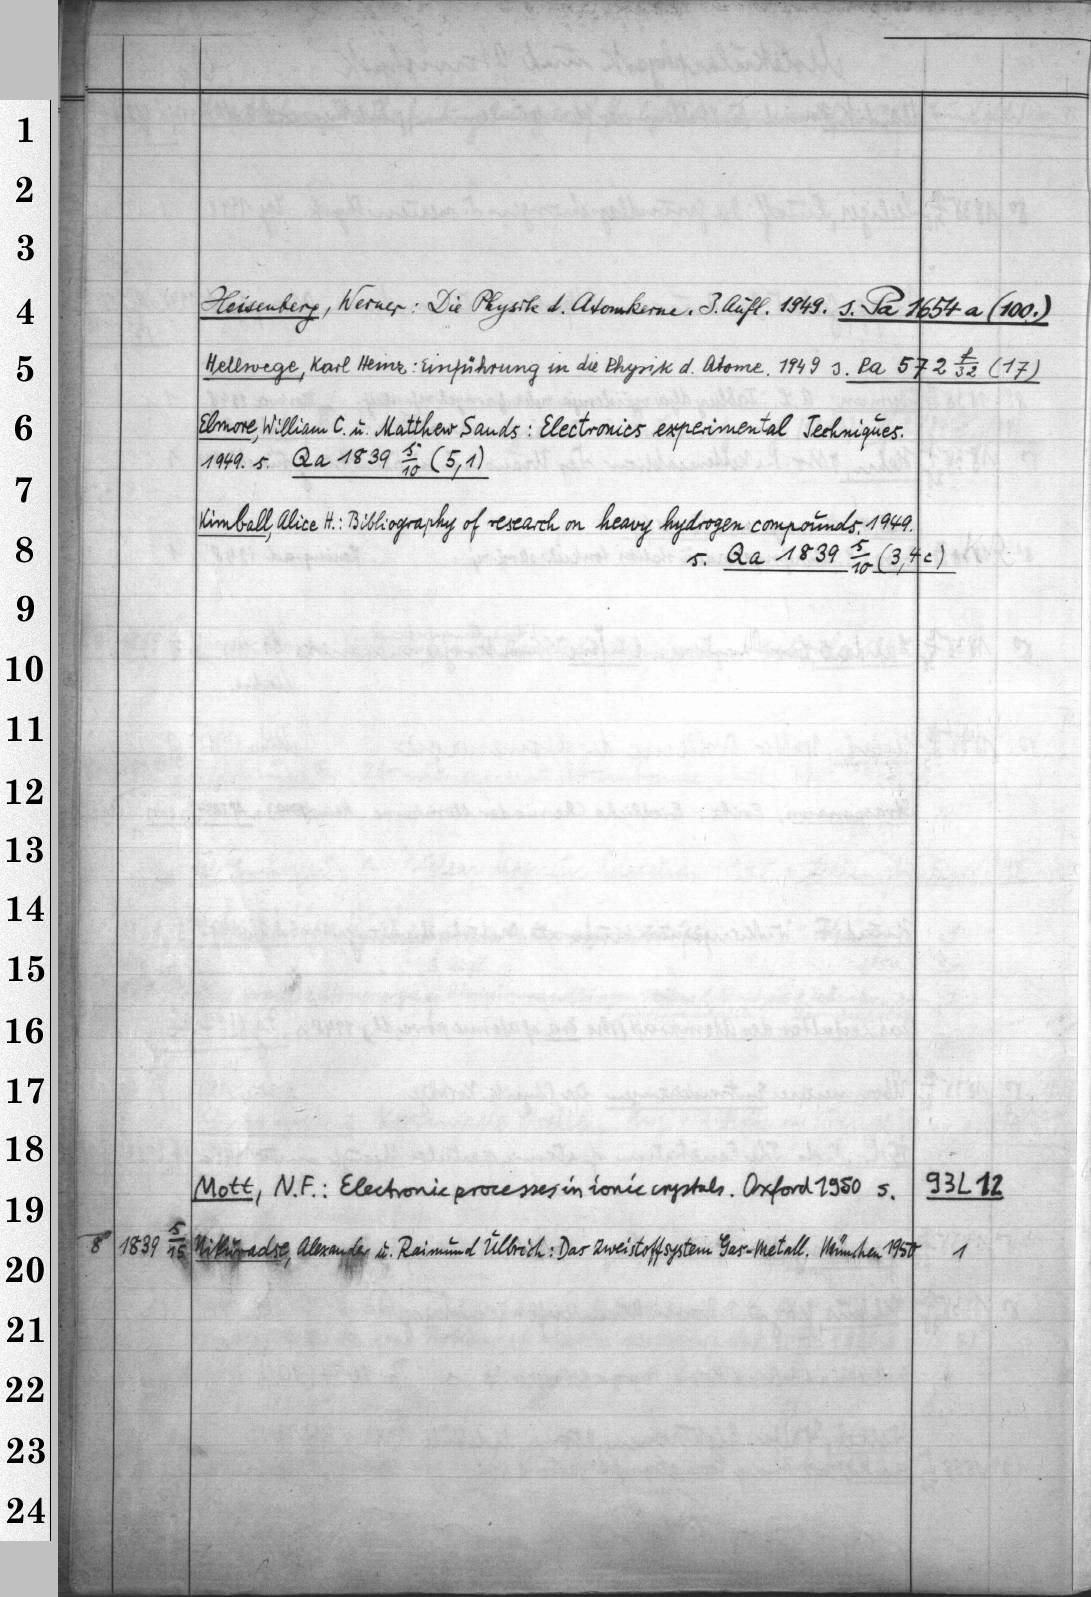 1
2
3
4
5
6
7
8
9
10
11
12
13
14
15
16
17
18
19
20
21
22
23
24
Heisenberg, Werner: Die Physik d. Atomkerne. 3. Aufl. 1949. s. Pa 1654 a (100.)
Hellwege, Karl Heinz: Einführung in die Physik d. Atome. 1949 s. Pa 572 f/32 (17)
Elmore, William C. u. Matthew Sands: Electronics experimental Techniques.
1949. s. Qa 1839 5/10 (5,1)
Kimball, Alice H.: Bibliography of research on heavy hydrogen compounds. 1949.
s. Qa 1839 5/10 (3,4c)
Mott, N.F.: Electronic processes in ionic crystals. Oxford 1950 s. 93L12
8° 1839 5/15 Nikuradse, Alexander u. Raimund Ulbrich: Das Zweistoffsystem Gas-Metall. München 1950 1